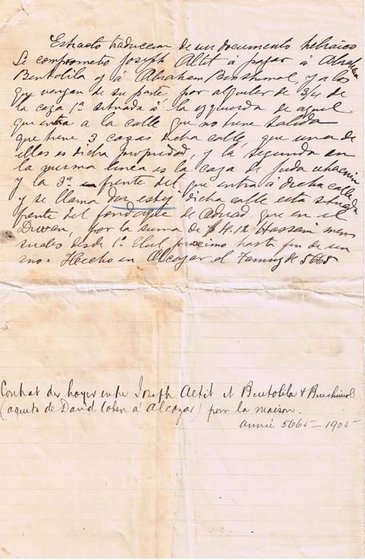 Estracto traduccion de un documento hebraico
Se comprometió Joseph Altit á pagar á Abraham
Bentolila y á Abraham Benchimol, y a los
que vengan de su parte por alquiler de 3/4 de
la caza 1ª situada á la izquierda de aquel
que entra a la calle que no tiene salida
que tiene 3 cazas dicha calle, que una de
ellas es dicha propiedad, y la segunda en
la misma linea es la caza de Juda
y la 3ª en frente del que entra á dicha calle
y se llama dicha calle está situada
frente del de que en el
Diwan, por la suma de $ 4.12 Hassani men
suales desde 1º Elul proximo hasta fin de un
año. Hecho en Alcazar el 5665
Contrat de loyer entre Joseph Altit et Bentolila & Benchimol
(agents de David Cohen à Alcazar) pour la maison.
année 5665 - 1905